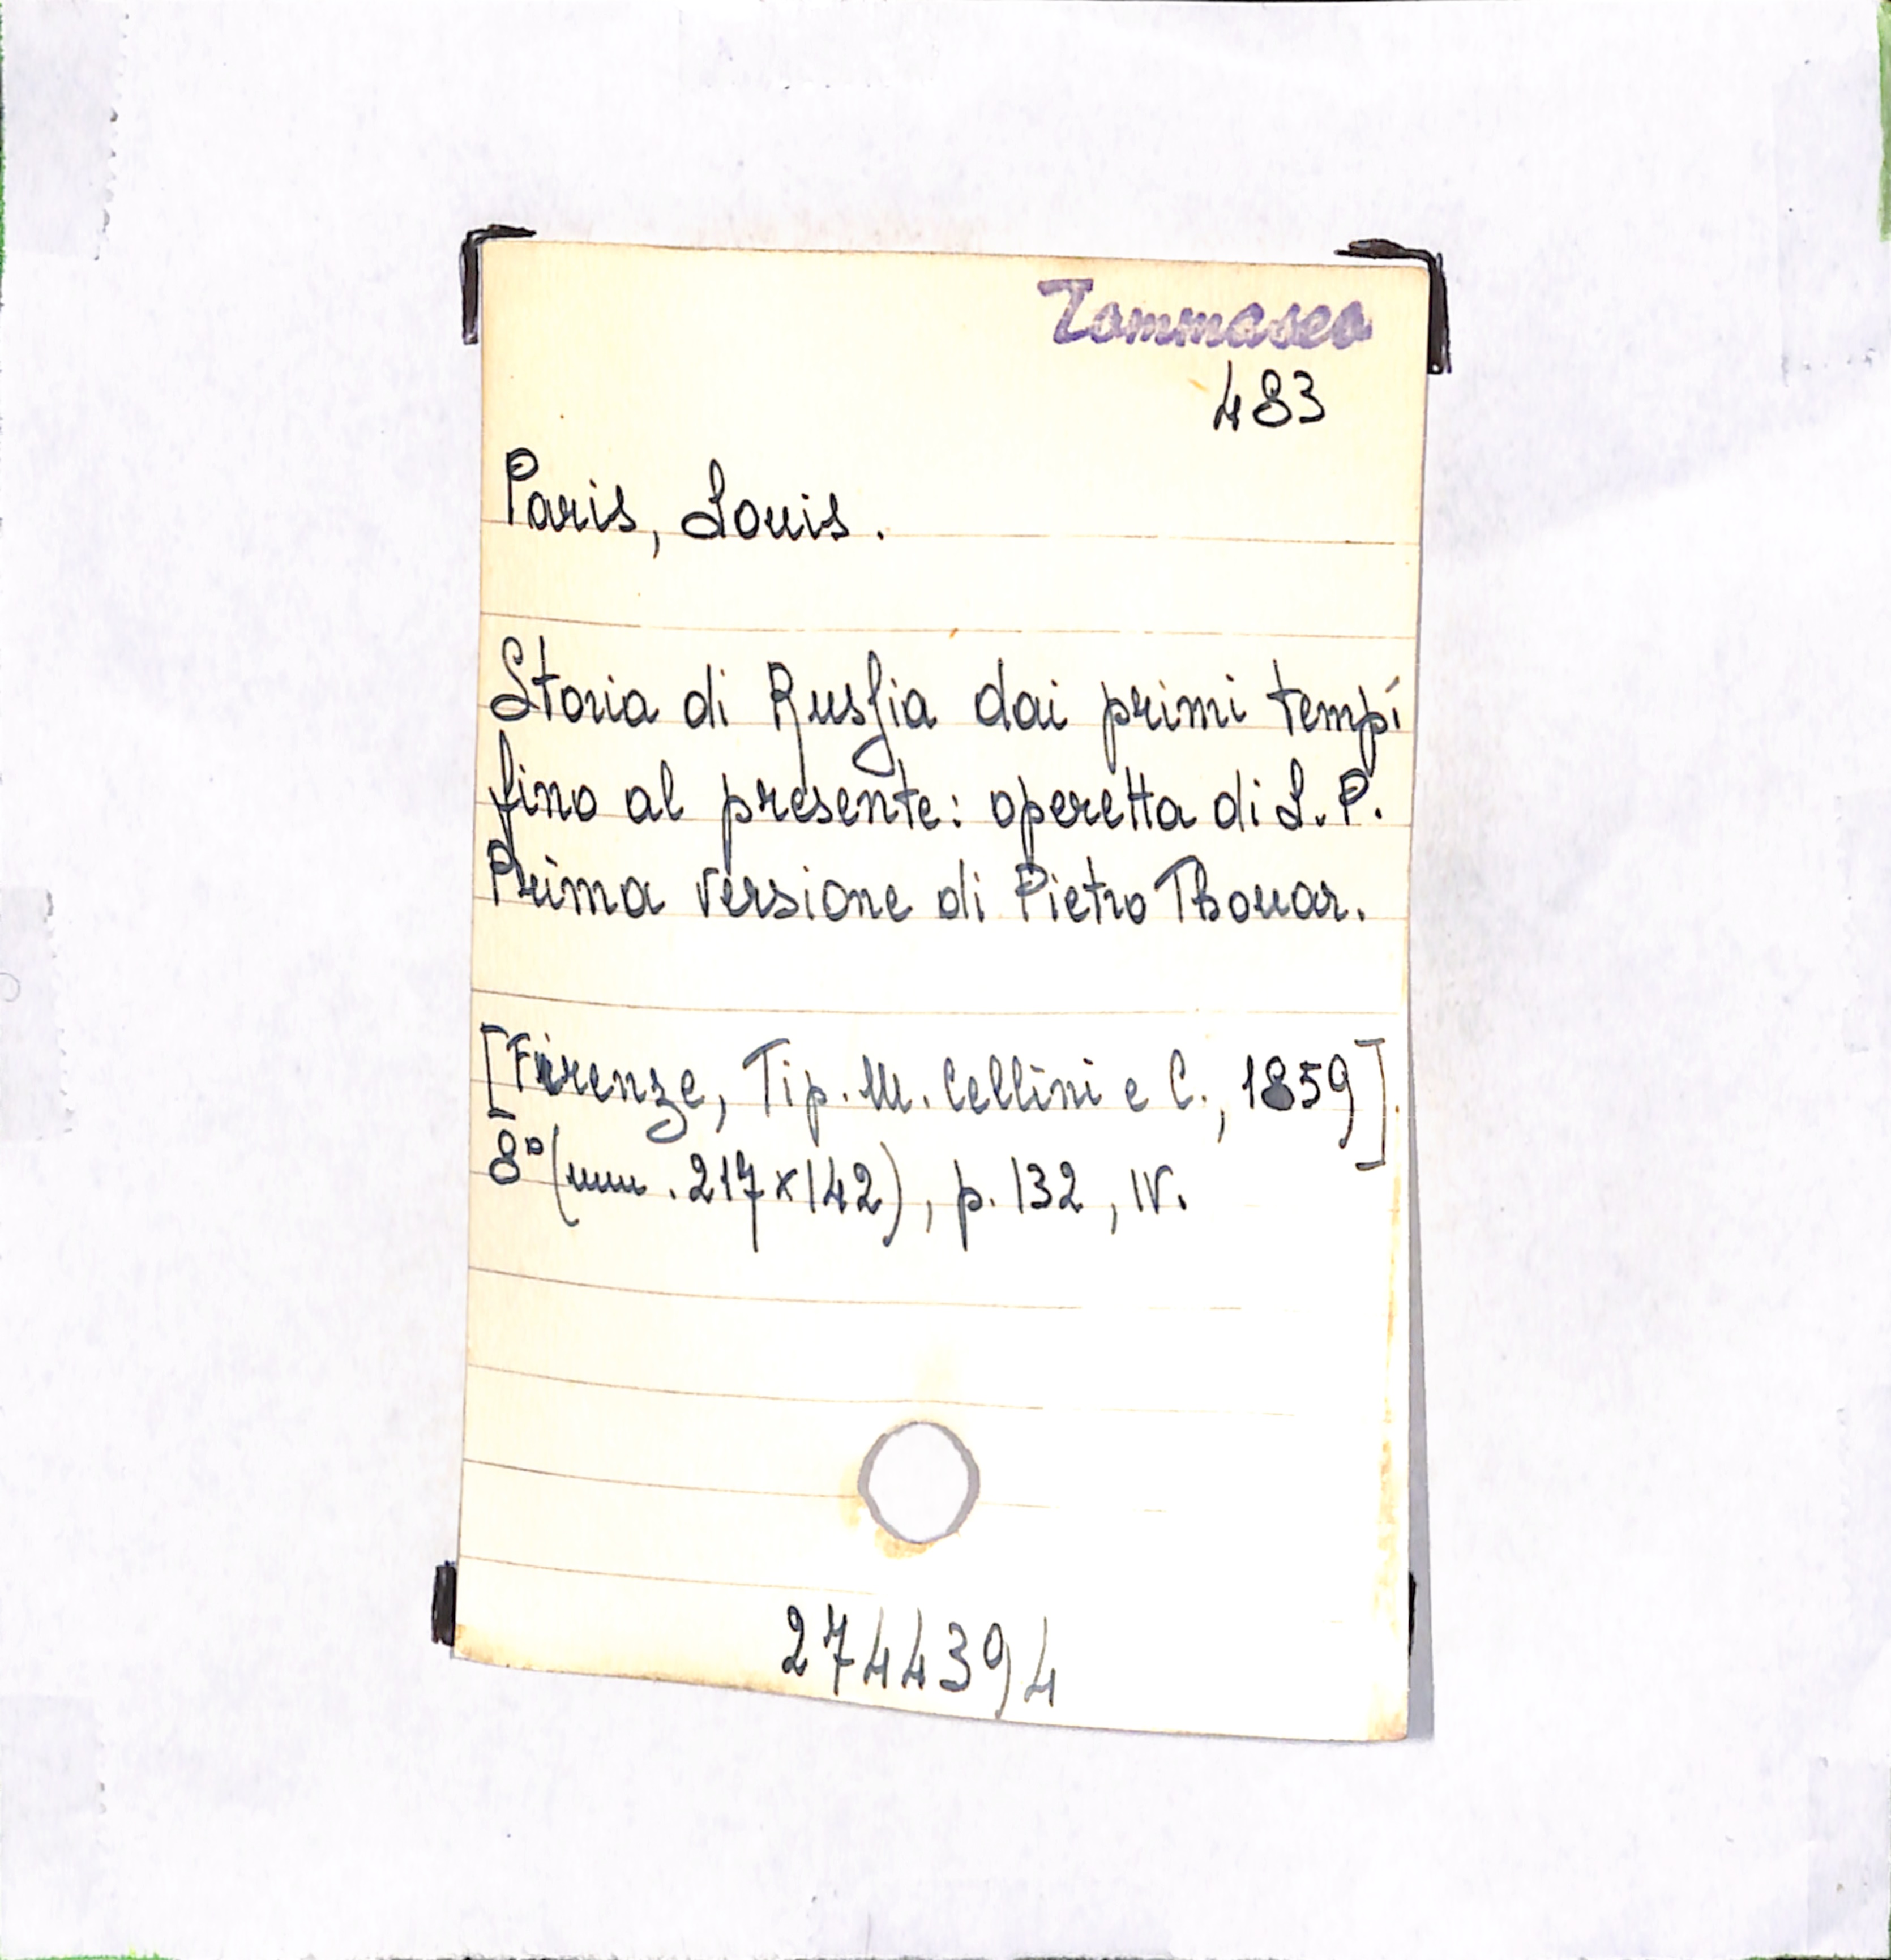 Tommaseo
483
Paris, Louis.
Storia di Russia dai primi tempi
fino al presente: operetta di L. P.
Prima versione di Pietro Thouar.
[Firenze, Tip. M. Cellini e C., 1859].
8° (mm. 217x142), p. 132, IV.
2744394